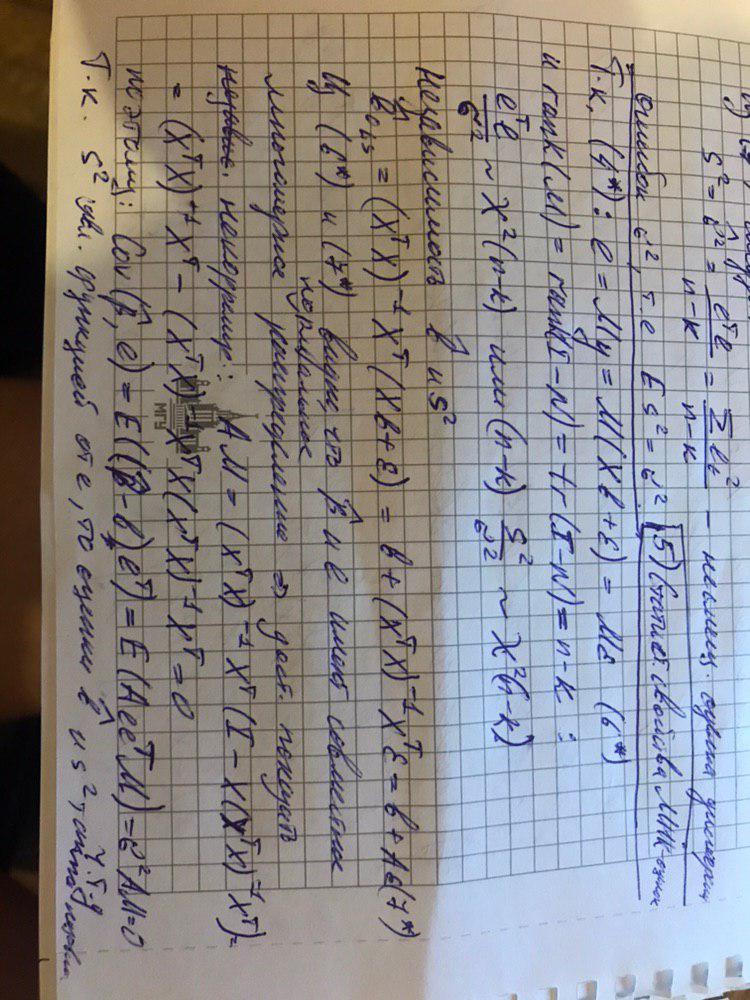 s² = σ̂² = eᵀe/(n-k) = Σeₜ²/(n-k) - несмещ. оценка дисперсии
ошибок σ², т.е. Es² = σ². (5) Статист. свойства МНК-оценок.
Т.к. (4*): e = My = M(Xb+ε) = Mε (6*)
и rank(M) = rank(I-N) = tr(I-N) = n-k :
eᵀe/σ² ~ χ²(n-k) или (n-k) s²/σ² ~ χ²(n-k)
Независимость b̂ и s²
b̂ₒₗₛ = (XᵀX)⁻¹Xᵀ(Xb+ε) = b + (XᵀX)⁻¹Xᵀε = b + Aε (7*)
Из (6*) и (7*) видно, что b̂ и e имеют совместное
нормальное
многомерное распределение ⇒ дост. показать
некоррелир.: AM = (XᵀX)⁻¹Xᵀ(I - X(XᵀX)⁻¹Xᵀ) =
= (XᵀX)⁻¹Xᵀ - (XᵀX)⁻¹XᵀX(XᵀX)⁻¹Xᵀ = 0
МГУ
поэтому: Cov(β̂, e) = E((β̂-b)eᵀ) = E(AεεᵀM) = σ²AM = 0
Т.к. s² явл. функцией от e, то оценки b̂ и s²
ч.т.д